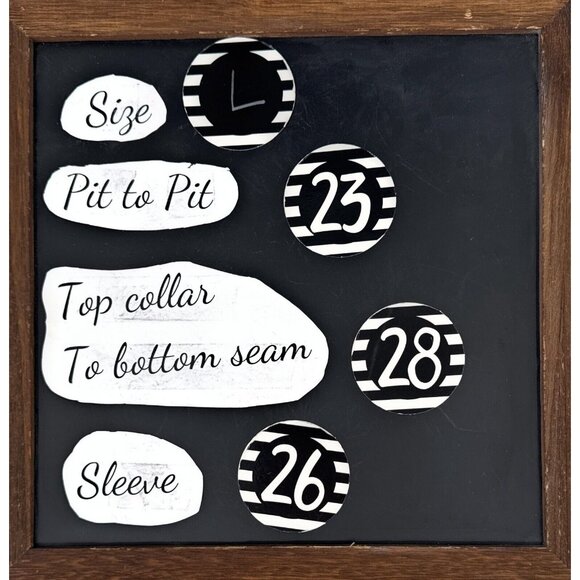 Size L
Pit to Pit 23
Top collar
To bottom seam 28
Sleeve 26